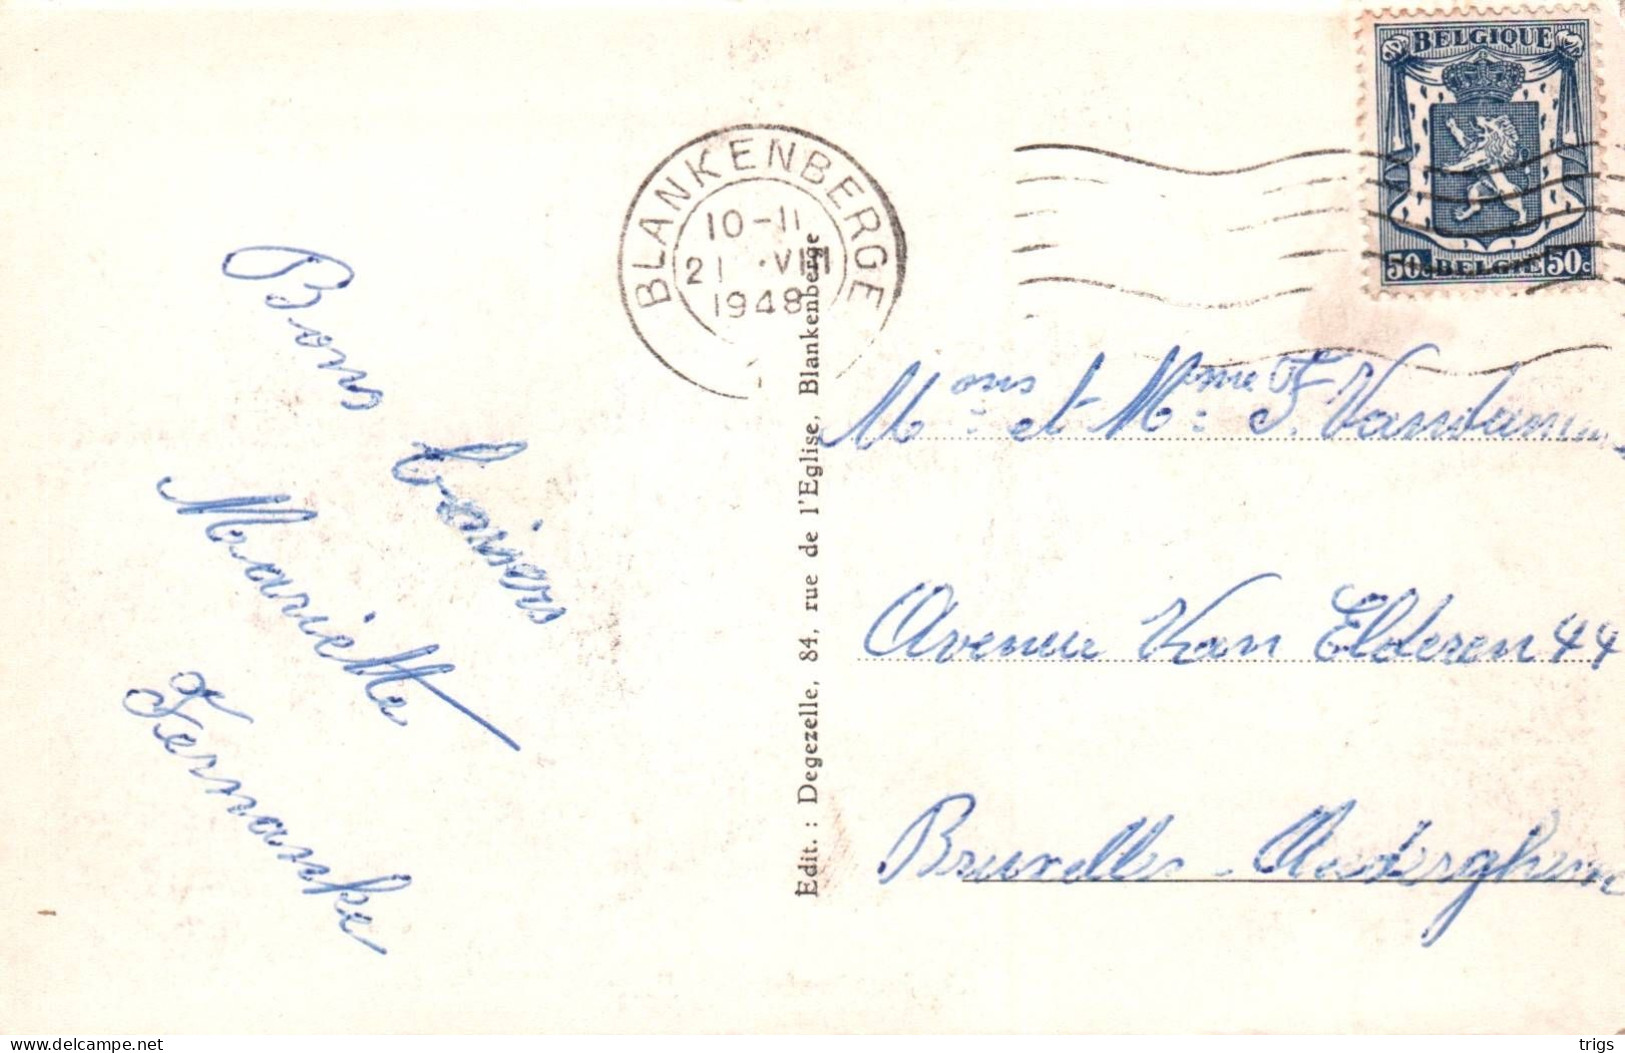 BELGIQUE
50c BELGIE 50c
BLANKENBERGE
10-11
21 .VIII
1948
Bons
baisers
Mariètte
Fernanke
Edit. : Degezelle, 84, rue de l'Eglise, Blankenberge
Mons: et Mme: F. Vandamme
Avenue Van Elderen 44
Bruxelles - Auderghem
www.delcampe.net
trigs